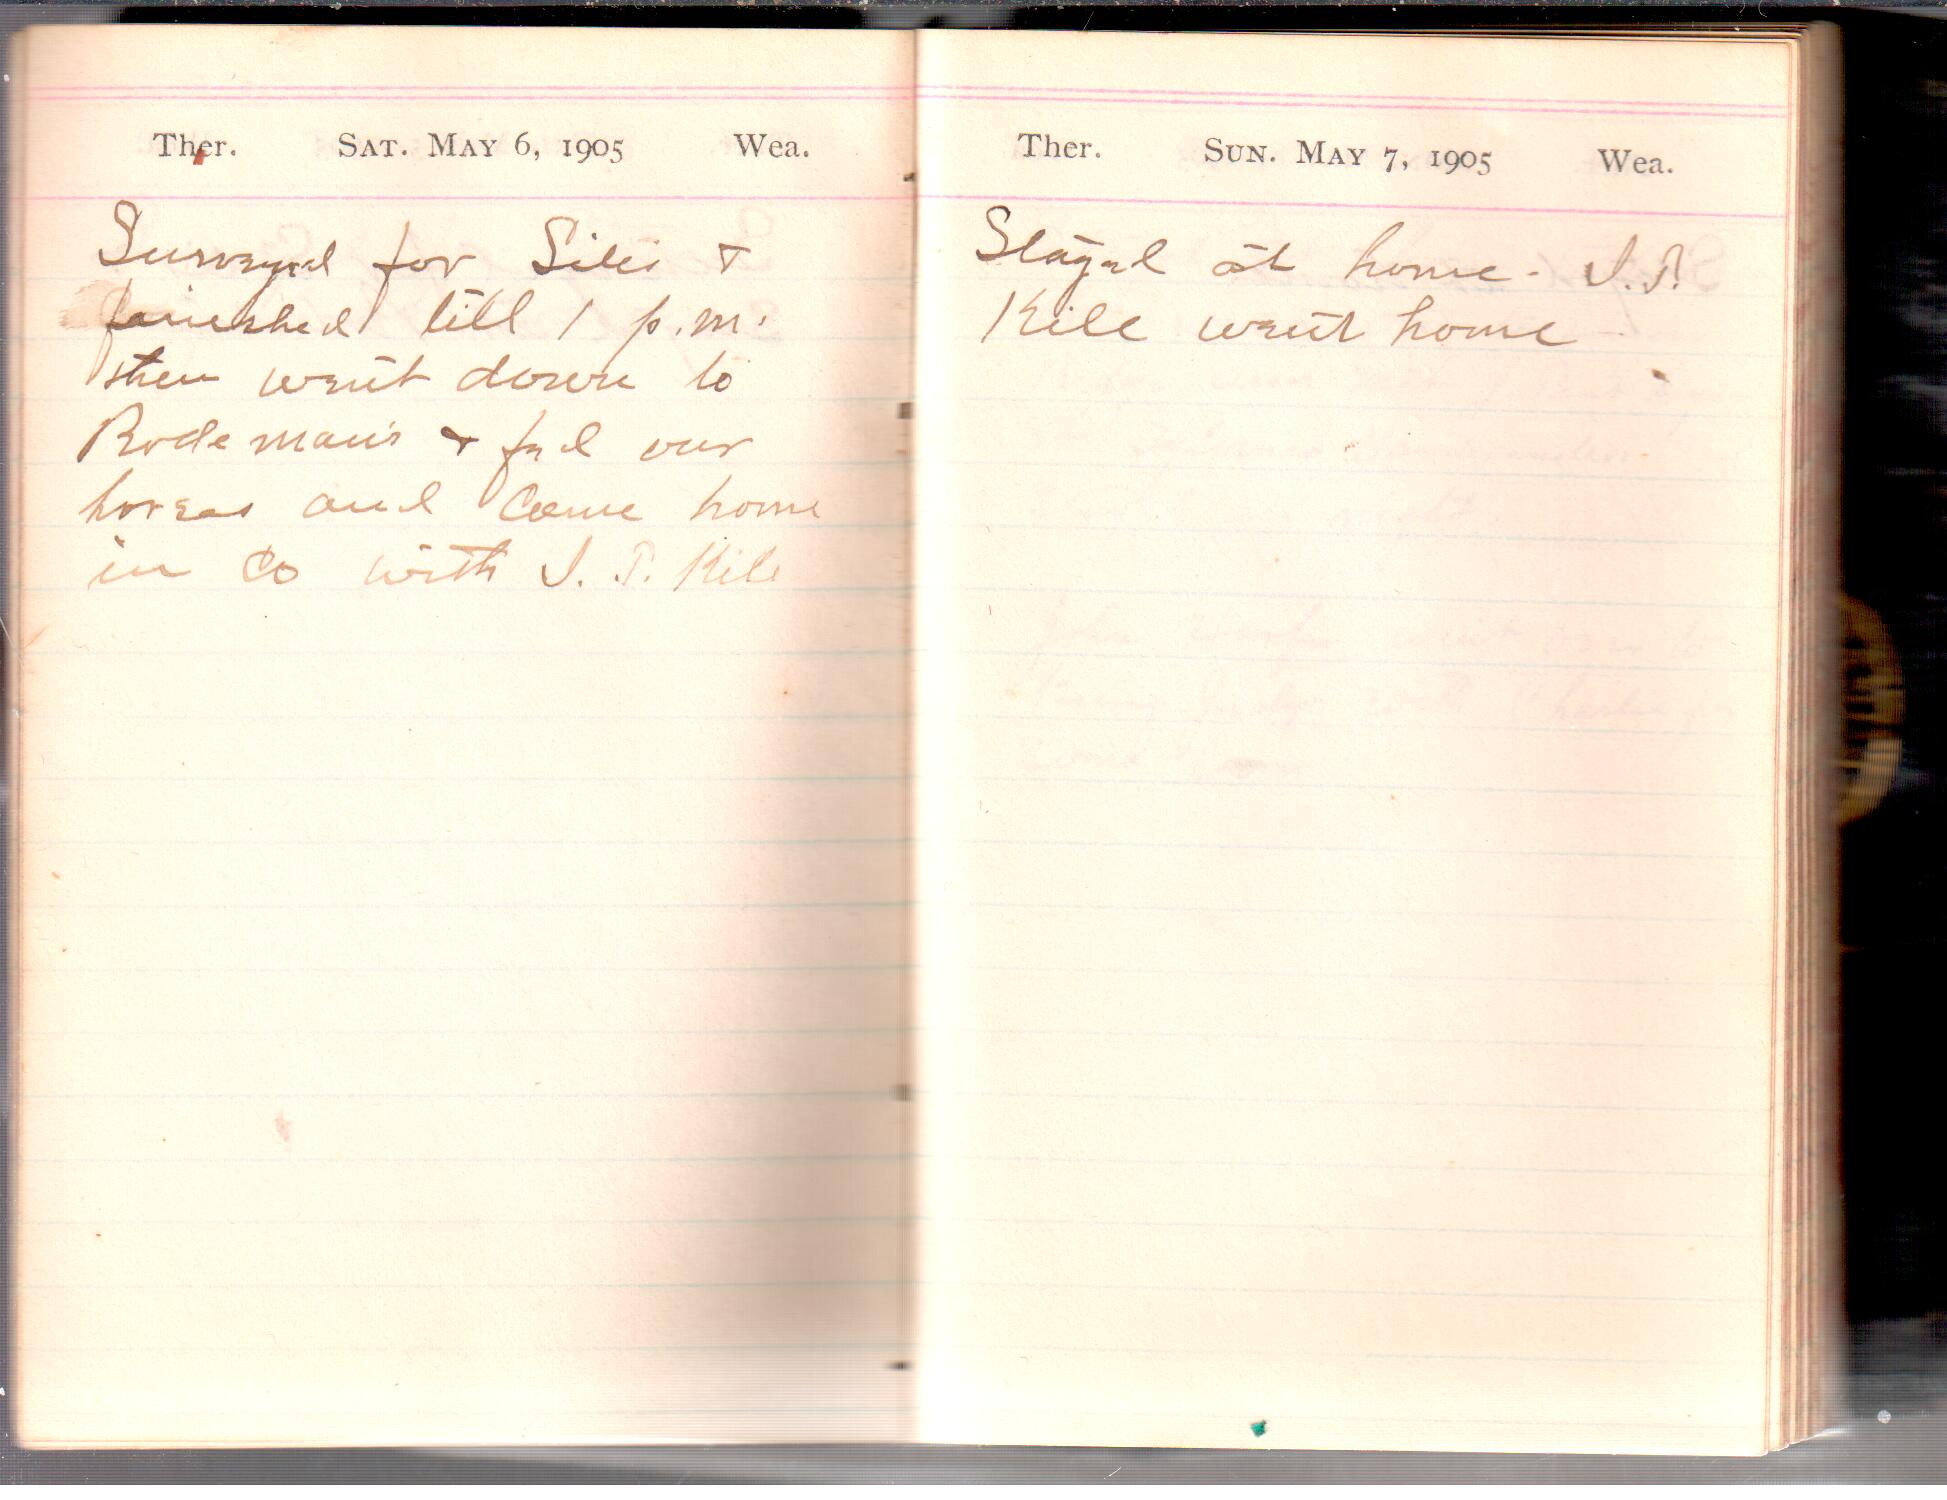 Ther. SAT. MAY 6, 1905 Wea.
Surveyed for Sites &
finished till 1 p.m.
then went down to
Rodeman's & fed our
horses and came home
in Co with I. P. Kile
Ther. SUN. MAY 7, 1905 Wea.
Stayed at home - I. P.
Kile went home